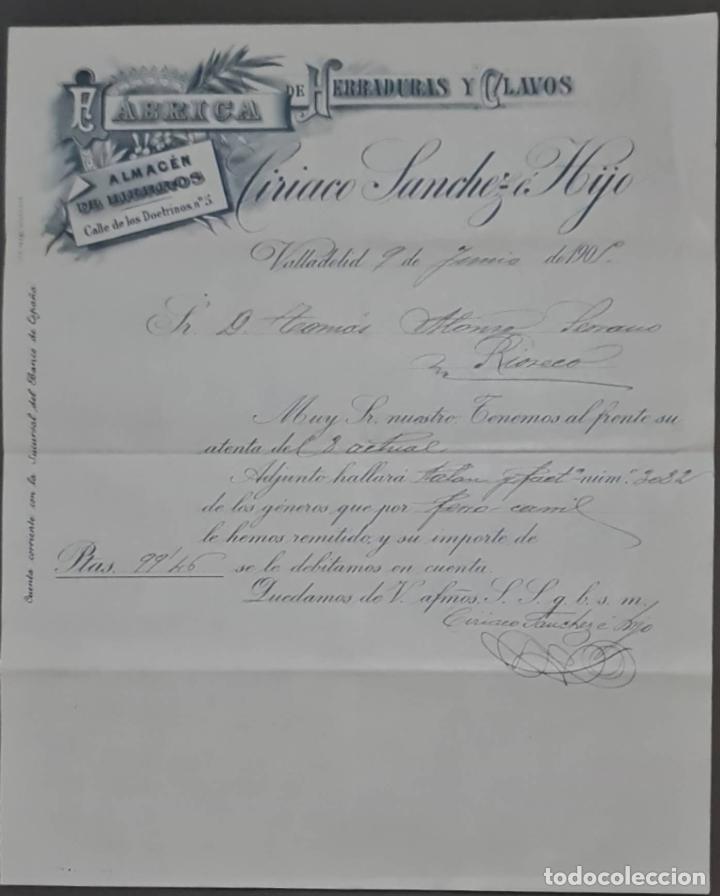 FÁBRICA DE HERRADURAS Y CLAVOS
ALMACÉN
DE HIERROS
Calle de los Doctrinos, nº 5.
Ciriaco Sanchez é Hijo
Valladolid 9 de Junio de 190
Sr. D. Tomás Alonso Serrano
Rioseco
Muy Sr. nuestro: Tenemos al frente su
atenta del 8 actual
Adjunto hallará talon y fact.ª núm.º 3082
de los géneros que por ferro-carril
le hemos remitido, y su importe de
Ptas. 99'46 se le debitamos en cuenta.
Quedamos de V. afmos. S. S. q. b. s. m.
Ciriaco Sanchez é Hijo
Cuenta corriente con la Sucursal del Banco de España.
todocoleccion